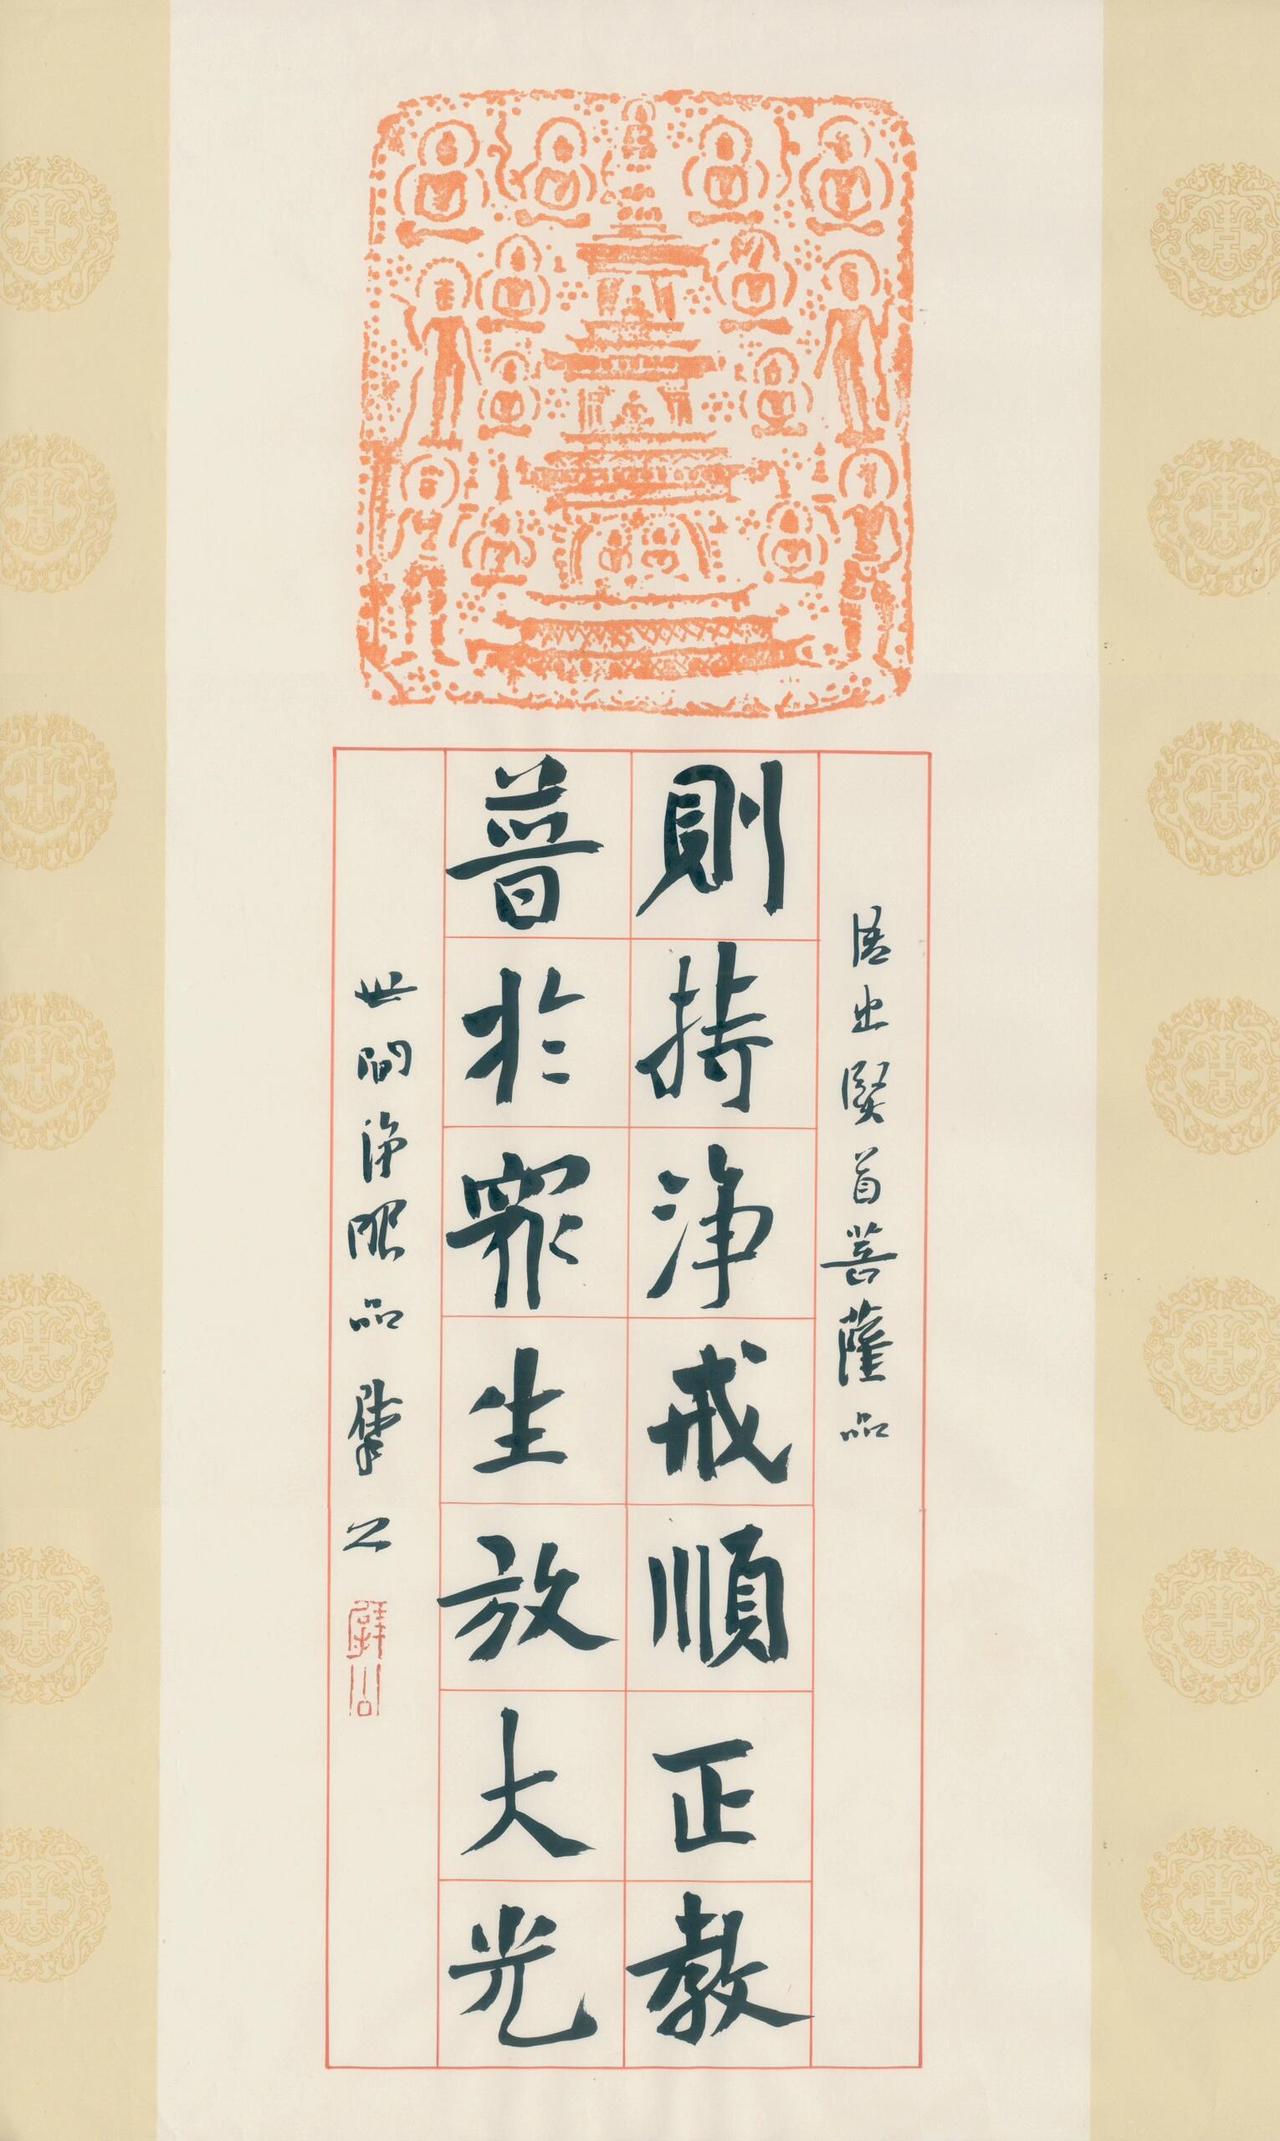 語出賢首菩薩品
則持淨戒順正教
普於眾生放大光
世間淨眼品